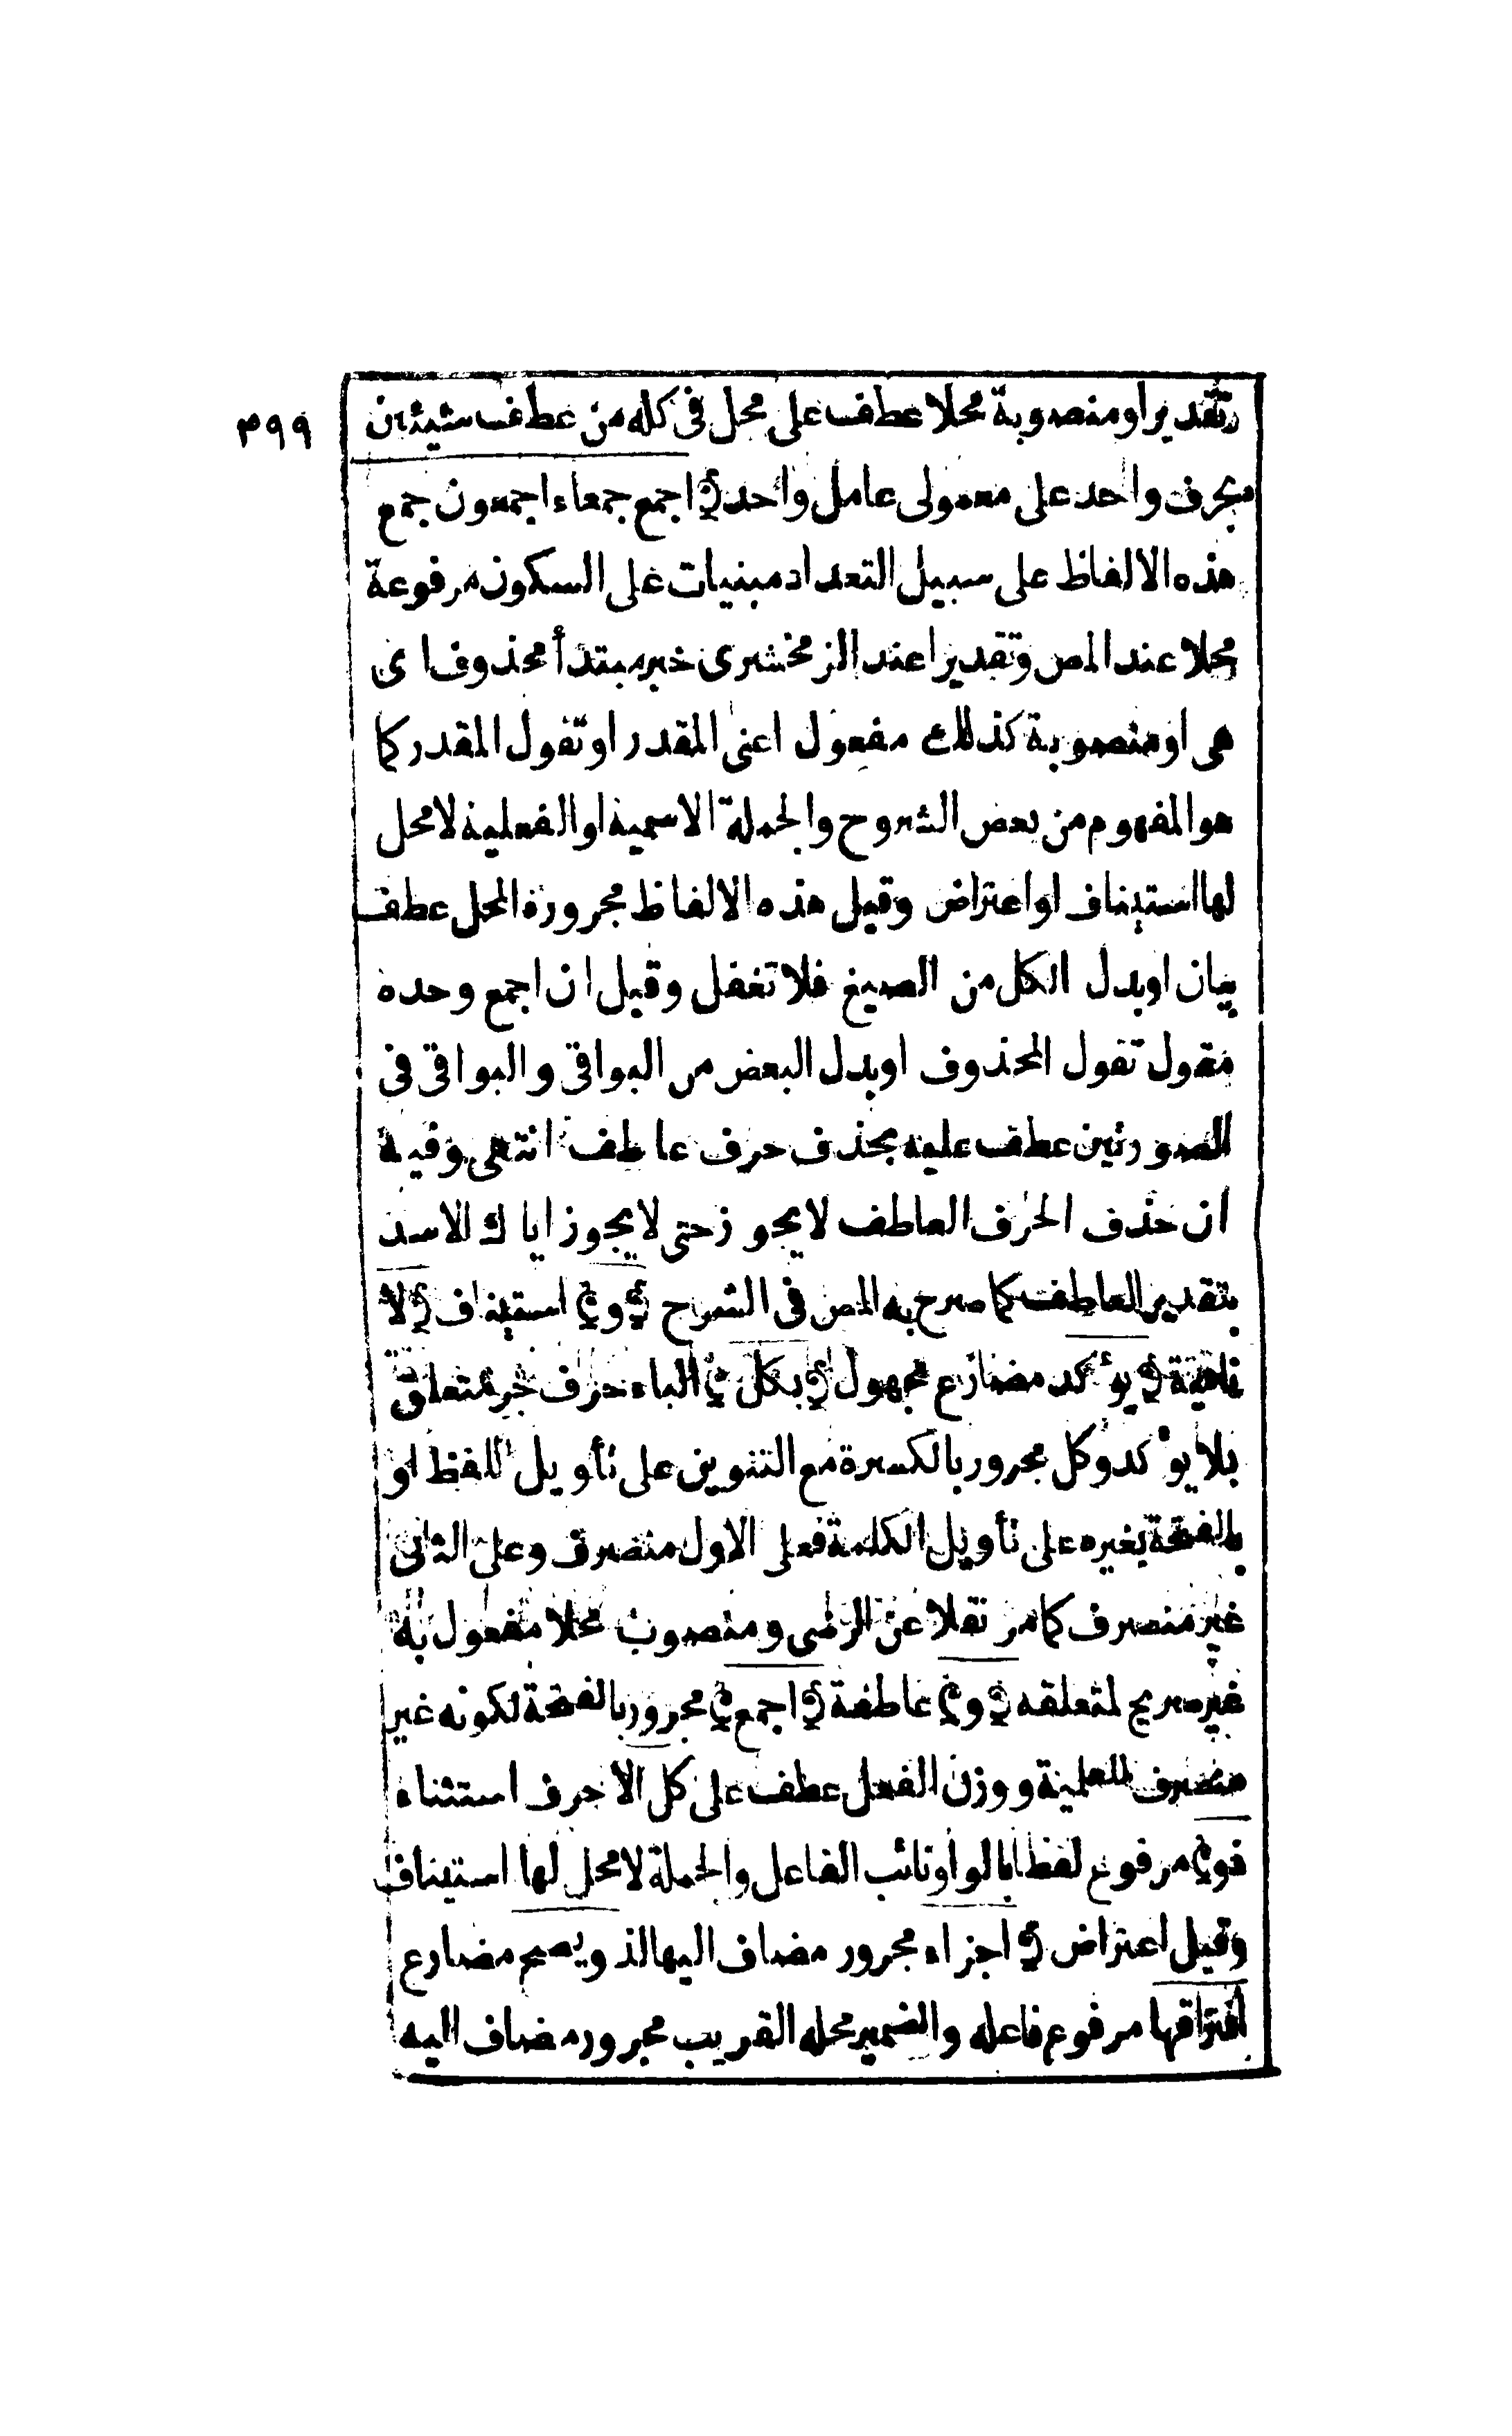 ٣٩٩
تقديرا ومنصوبة محلا عطف على محل فى كله من عطف شيئين
بحرف واحد على معمولى عامل واحد ﴿ اجمع جمعاء اجمعون جمع
هذه الالفاظ على سبيل التعداد مبنيات على السكون مرفوعة
محلا عند المص وتقديرا عند الزمخشرى خبر مبتدأ محذوف اى
هى او منصوبة كذلك مفعول اعنى المقدر او تقول المقدر كما
هو المفهوم من بعض الشروح والجملة الاسمية او الفعلية لا محل
لها استيناف او اعتراض وقيل هذه الالفاظ مجرورة المحل عطف
بيان او بدل الكل من الصيغ فلا تغفل وقيل ان اجمع وحده
مقول تقول المحذوف او بدل البعض من البواقى والبواقى فى
الصورتين عطف عليه بحذف حرف عاطف انتهى وفيه
ان حذف الحرف العاطف لا يجوز حتى لا يجوز اياك الاسد
بتقدير العاطف كما صرح به المص فى الشرح ﴿ و ﴾ استيناف ﴿ لا
نافية ﴿ يؤكد مضارع مجهول ﴿ بكل ﴾ الباء حرف جر متعلق
بلا يؤكد وكل مجرور بالكسرة مع التنوين على تأويل اللفظ او
بالفتحة بغيره على تأويل الكلمة فعلى الاول منصرف وعلى الثانى
غير منصرف كما مر نقلا عن الرضى ومنصوب محلا مفعول به
غير صريح لمتعلقه ﴿ و ﴾ عاطفة ﴿ اجمع ﴾ مجرور بالفتحة لكونه غير
منصرف للعلمية ووزن الفعل عطف على كل الا حرف استثناء
ذو ﴾ مرفوع لفظا بالواو نائب الفاعل والجملة لا محل لها استيناف
وقيل اعتراض ﴿ اجزاء مجرور مضاف اليها لذو يصح مضارع
افتراقها مرفوع فاعله والضمير محله القريب مجرور مضاف اليه